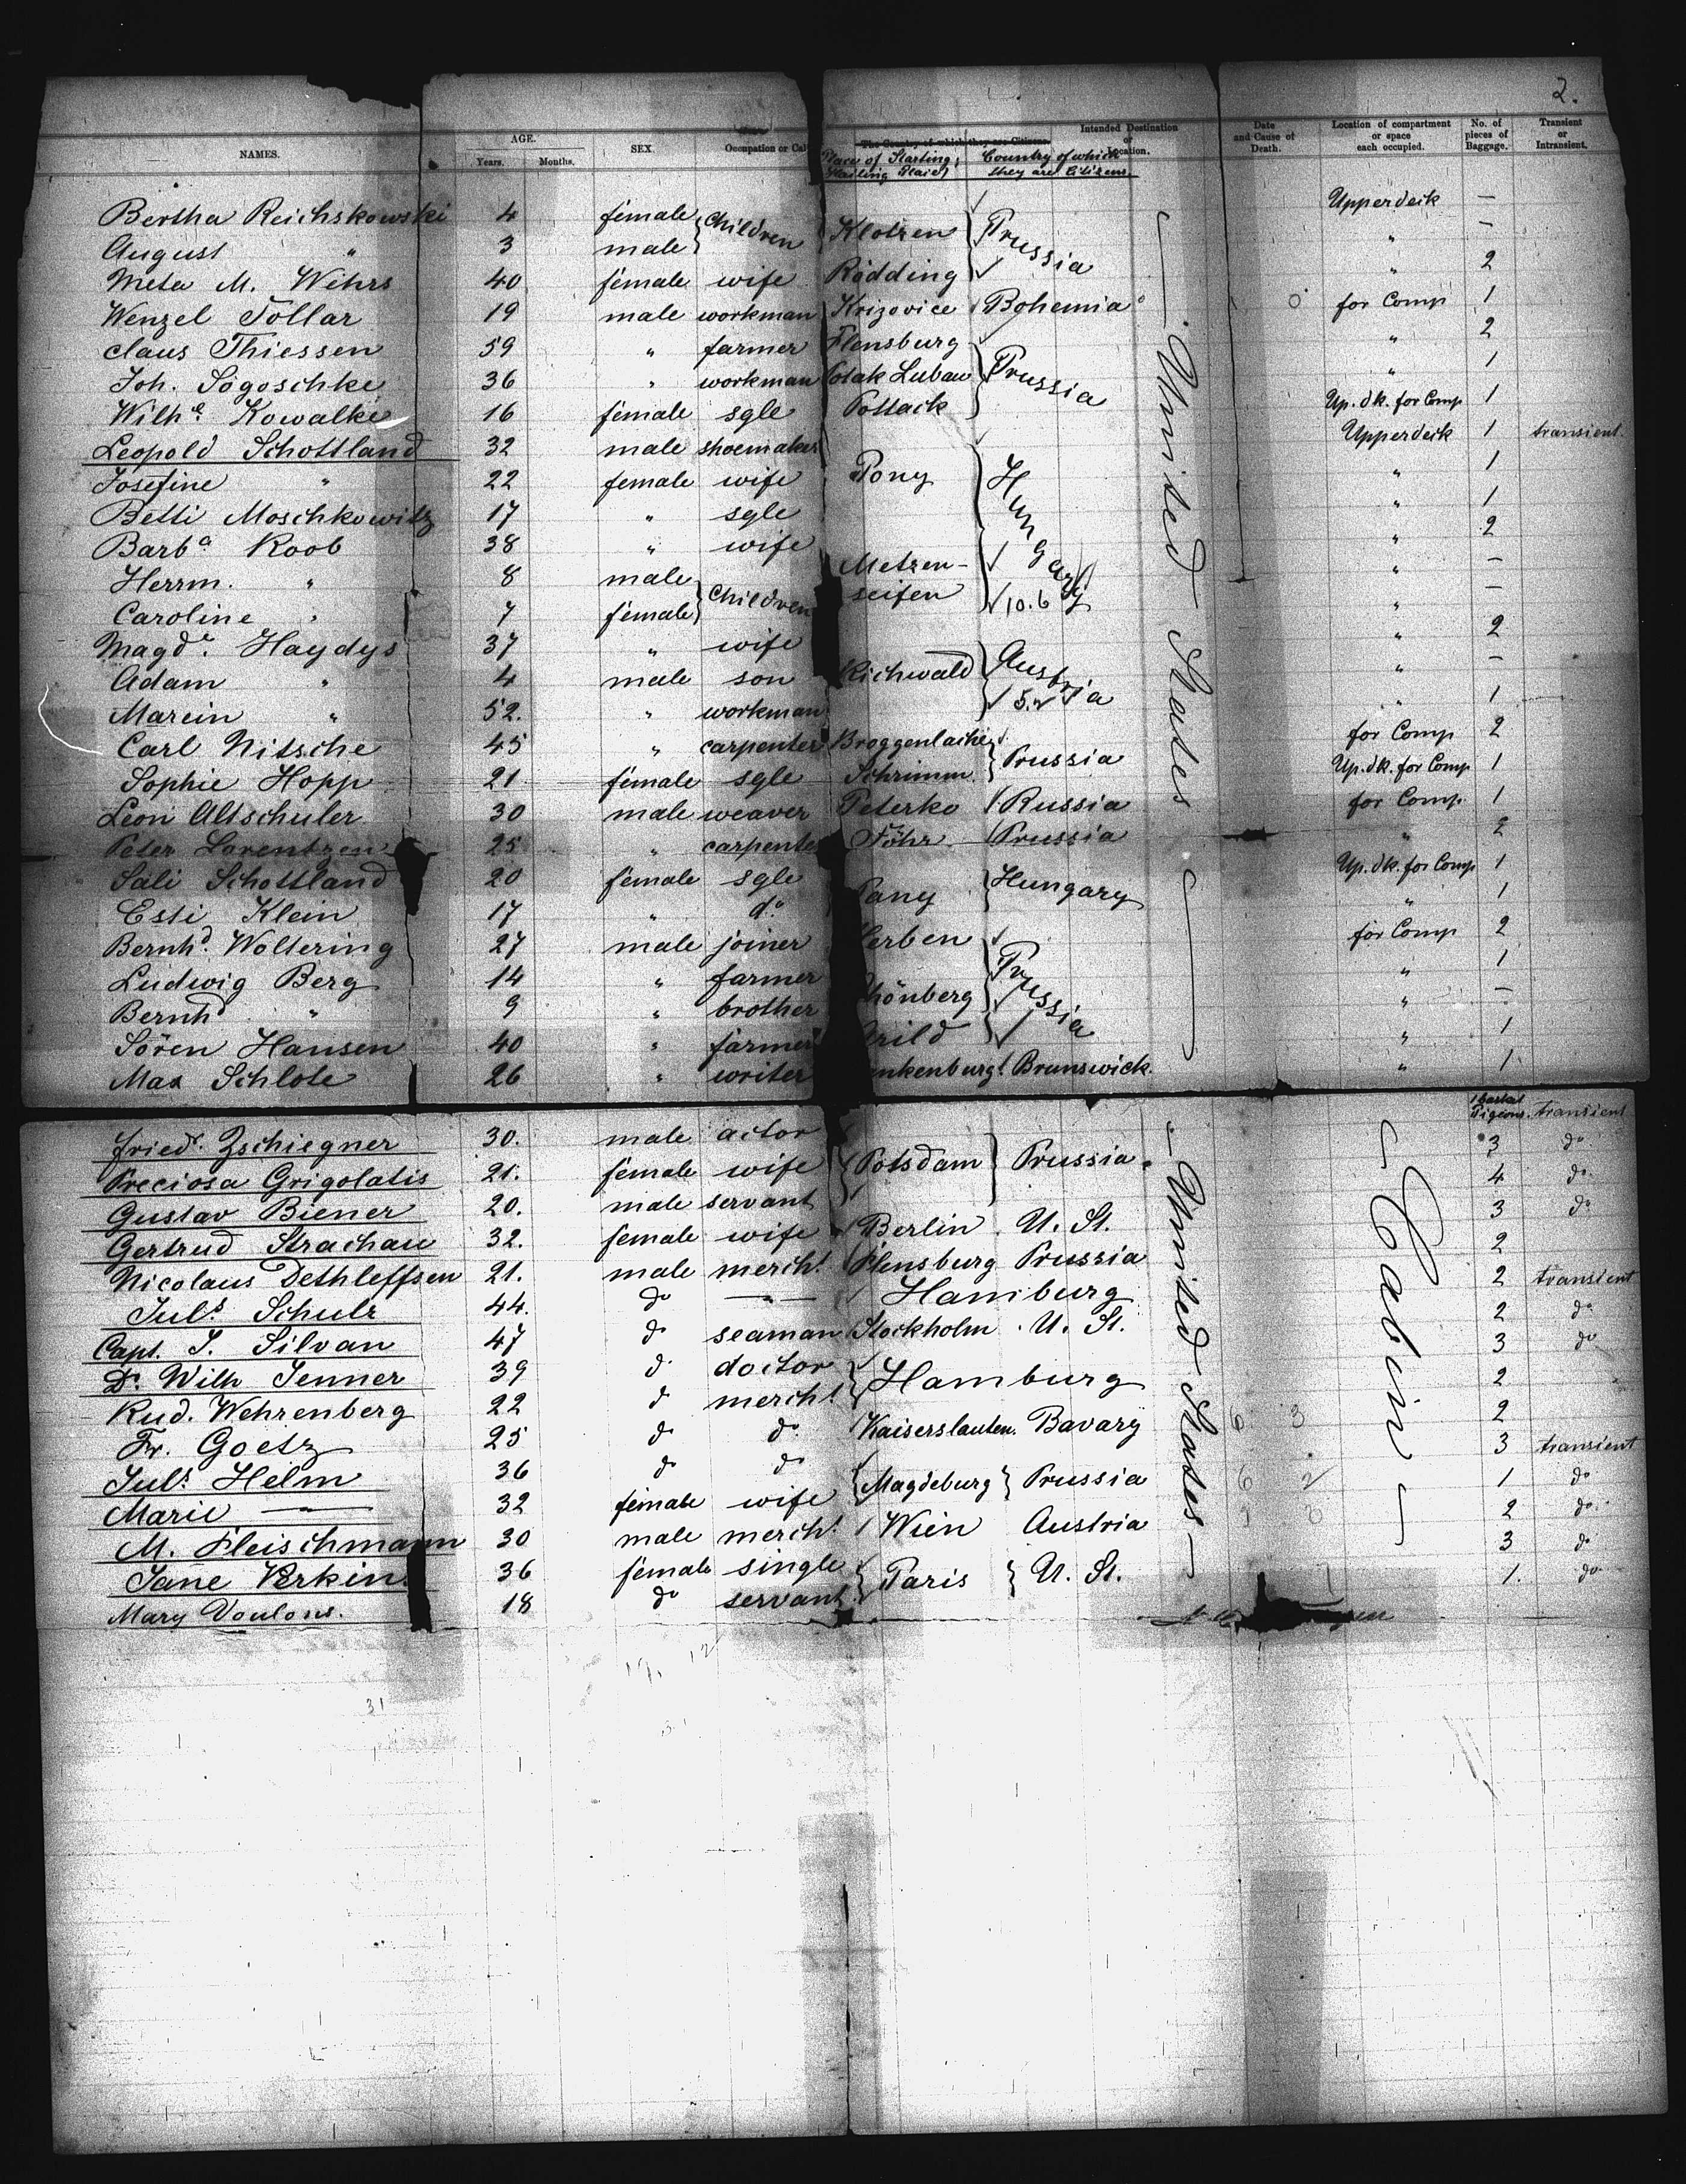 2.
NAMES. AGE. Years. Months. SEX. Occupation or Cal
The Country of which they are Citizens. Intended Destination or Location. Date and Cause of Death. Location of compartment or space each occupied. No. of pieces of Baggage. Transient or Intransient.
Place of Starting; Country of which they are Citizens.
Bertha Reichskowski 4 female Children Klotzen Prussia Upperdeck —
August " 3 male " —
Meta M. Wehrs 40 female wife Rödding " 2
Wenzel Tollar 19 male workman Krizovice Bohemia for Comp 1
Claus Thiessen 59 " farmer Flensburg Prussia " 2
Joh. Sogoschke 36 " workman Lubau " 1
Wilhe. Kowalke 16 female sgle Pottack Up. dk. for Comp 1
Leopold Schottland 32 male shoemaker Pony Hungary Upperdeck 1 transient
Josefine " 22 female wife " 1
Betti Moschkowitz 17 " sgle " 1
Barba Roob 38 " wife Metzen- " 2
Herrm. " 8 male Children seifen " —
Caroline " 7 female 10.6 " —
Magde. Haydys 37 " wife Richwald Austria " 2
Adam " 4 male son " —
Marcin " 52. " workman " 1
Carl Nitsche 45 " carpenter Broggenlache Prussia for Comp 2
Sophie Hopp 21 female sgle Schrimm Up. dk. for Comp 1
Leon Altschuler 30 male weaver Peterko Russia for Comp 1
Peter Lorentzen 25 " carpente Föhr Prussia " 2
Sali Schottland 20 female sgle Pany Hungary Up. dk. for Comp 1
Esti Klein 17 " do " 1
Bernhd. Woltering 27 male joiner erben Prussia for Comp 2
Ludwig Berg 14 " farmer hönberg " 1
Bernhd " 9 " brother " —
Sören Hansen 40 " farmer rild " 1
Max Schlote 26 " writer nkenburg Brunswick. " 1
United States
Friedr. Zschiegner 30. male actor Potsdam Prussia 1 basket Pigeons. transient
Preciosa Grigolatis 21. female wife 3 do
Gustav Biener 20. male servant 4 do
Gertrud Strachau 32. female wife Berlin U. St. 3 do
Nicolaus Dethleffsen 21. male mercht. Flensburg Prussia 2
Juls. Schulz 44. do — Hamburg 2 transient
Capt. S. Silvan 47 do seaman Stockholm U. St. 2 do
Dr. Wilh Jenner 39 do doctor Hamburg 3 do
Rud. Wehrenberg 22 do mercht. 2
Fr. Goetz 25 do do Kaiserslautern Bavary 2
Juls. Helm 36 do do Magdeburg Prussia 3 transient
Marie — 32 female wife 1 do
M. Fleischmann 30 male mercht. Wien Austria 2 do
Jane Perkin 36 female single Paris U. St. 3 do
Mary Voulons. 18 do servant 1. do
United States
Cabin